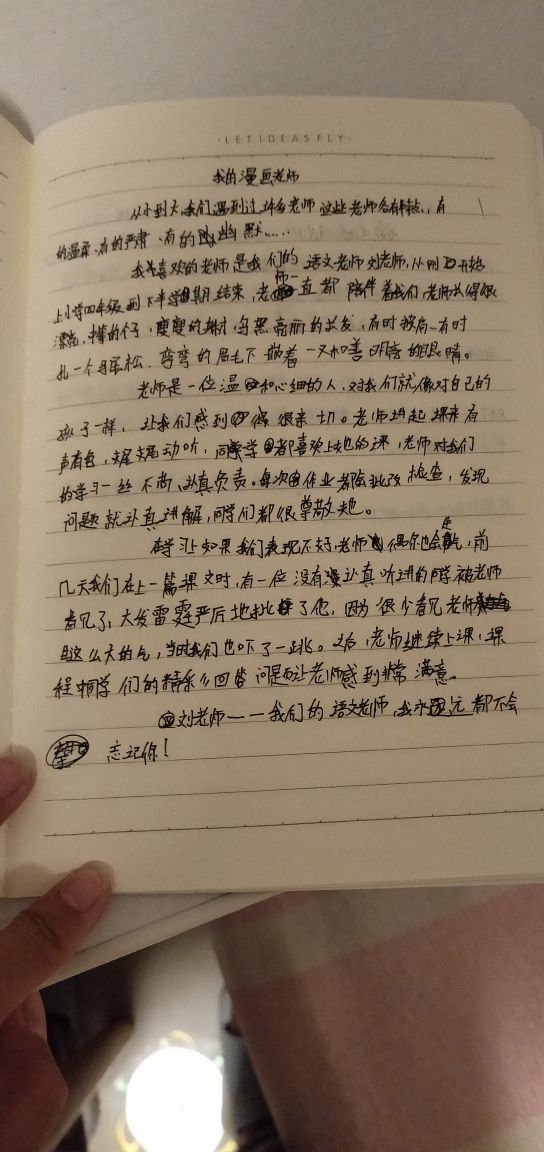 ·LETIDEASFLY·
我的漫画老师
从小到大,我们遇到过许多老师,这些老师各有特点,有
的温柔、有的严肃、有的幽默……
我最喜欢的老师是我们的语文老师刘老师,从刚开始
上小学四年级到下半学期结束,老师一直都陪伴着我们,老师长得很
漂亮,中等的个子,瘦瘦的身材,乌黑亮丽的长发,有时披肩,有时
扎一个马尾松。弯弯的眉毛下带着一双和善明亮的眼睛。
老师是一位温和心细的人,对我们就像对自己的
孩子一样,让我们感到很亲切。老师讲起课来有
声有色,娓娓动听,同学都喜欢上她的课,老师对我们
的学习一丝不苟,认真负责。每次作业都会批改检查,发现
问题就认真讲解,同学们都很尊敬她。
在学习上如果我们表现不好,老师偶尔也会生气,前
几天我们在上一篇课文时,有一位没有认真听讲的同学被老师
看见了,大发雷霆严厉地批评了他,因为很少看见老师
这么大的气,当时我们也吓了一跳。之后,老师继续上课,课
程中同学们的精彩回答问是而让老师感到非常满意。
刘老师——我们的语文老师,我永远都不会
忘记你!